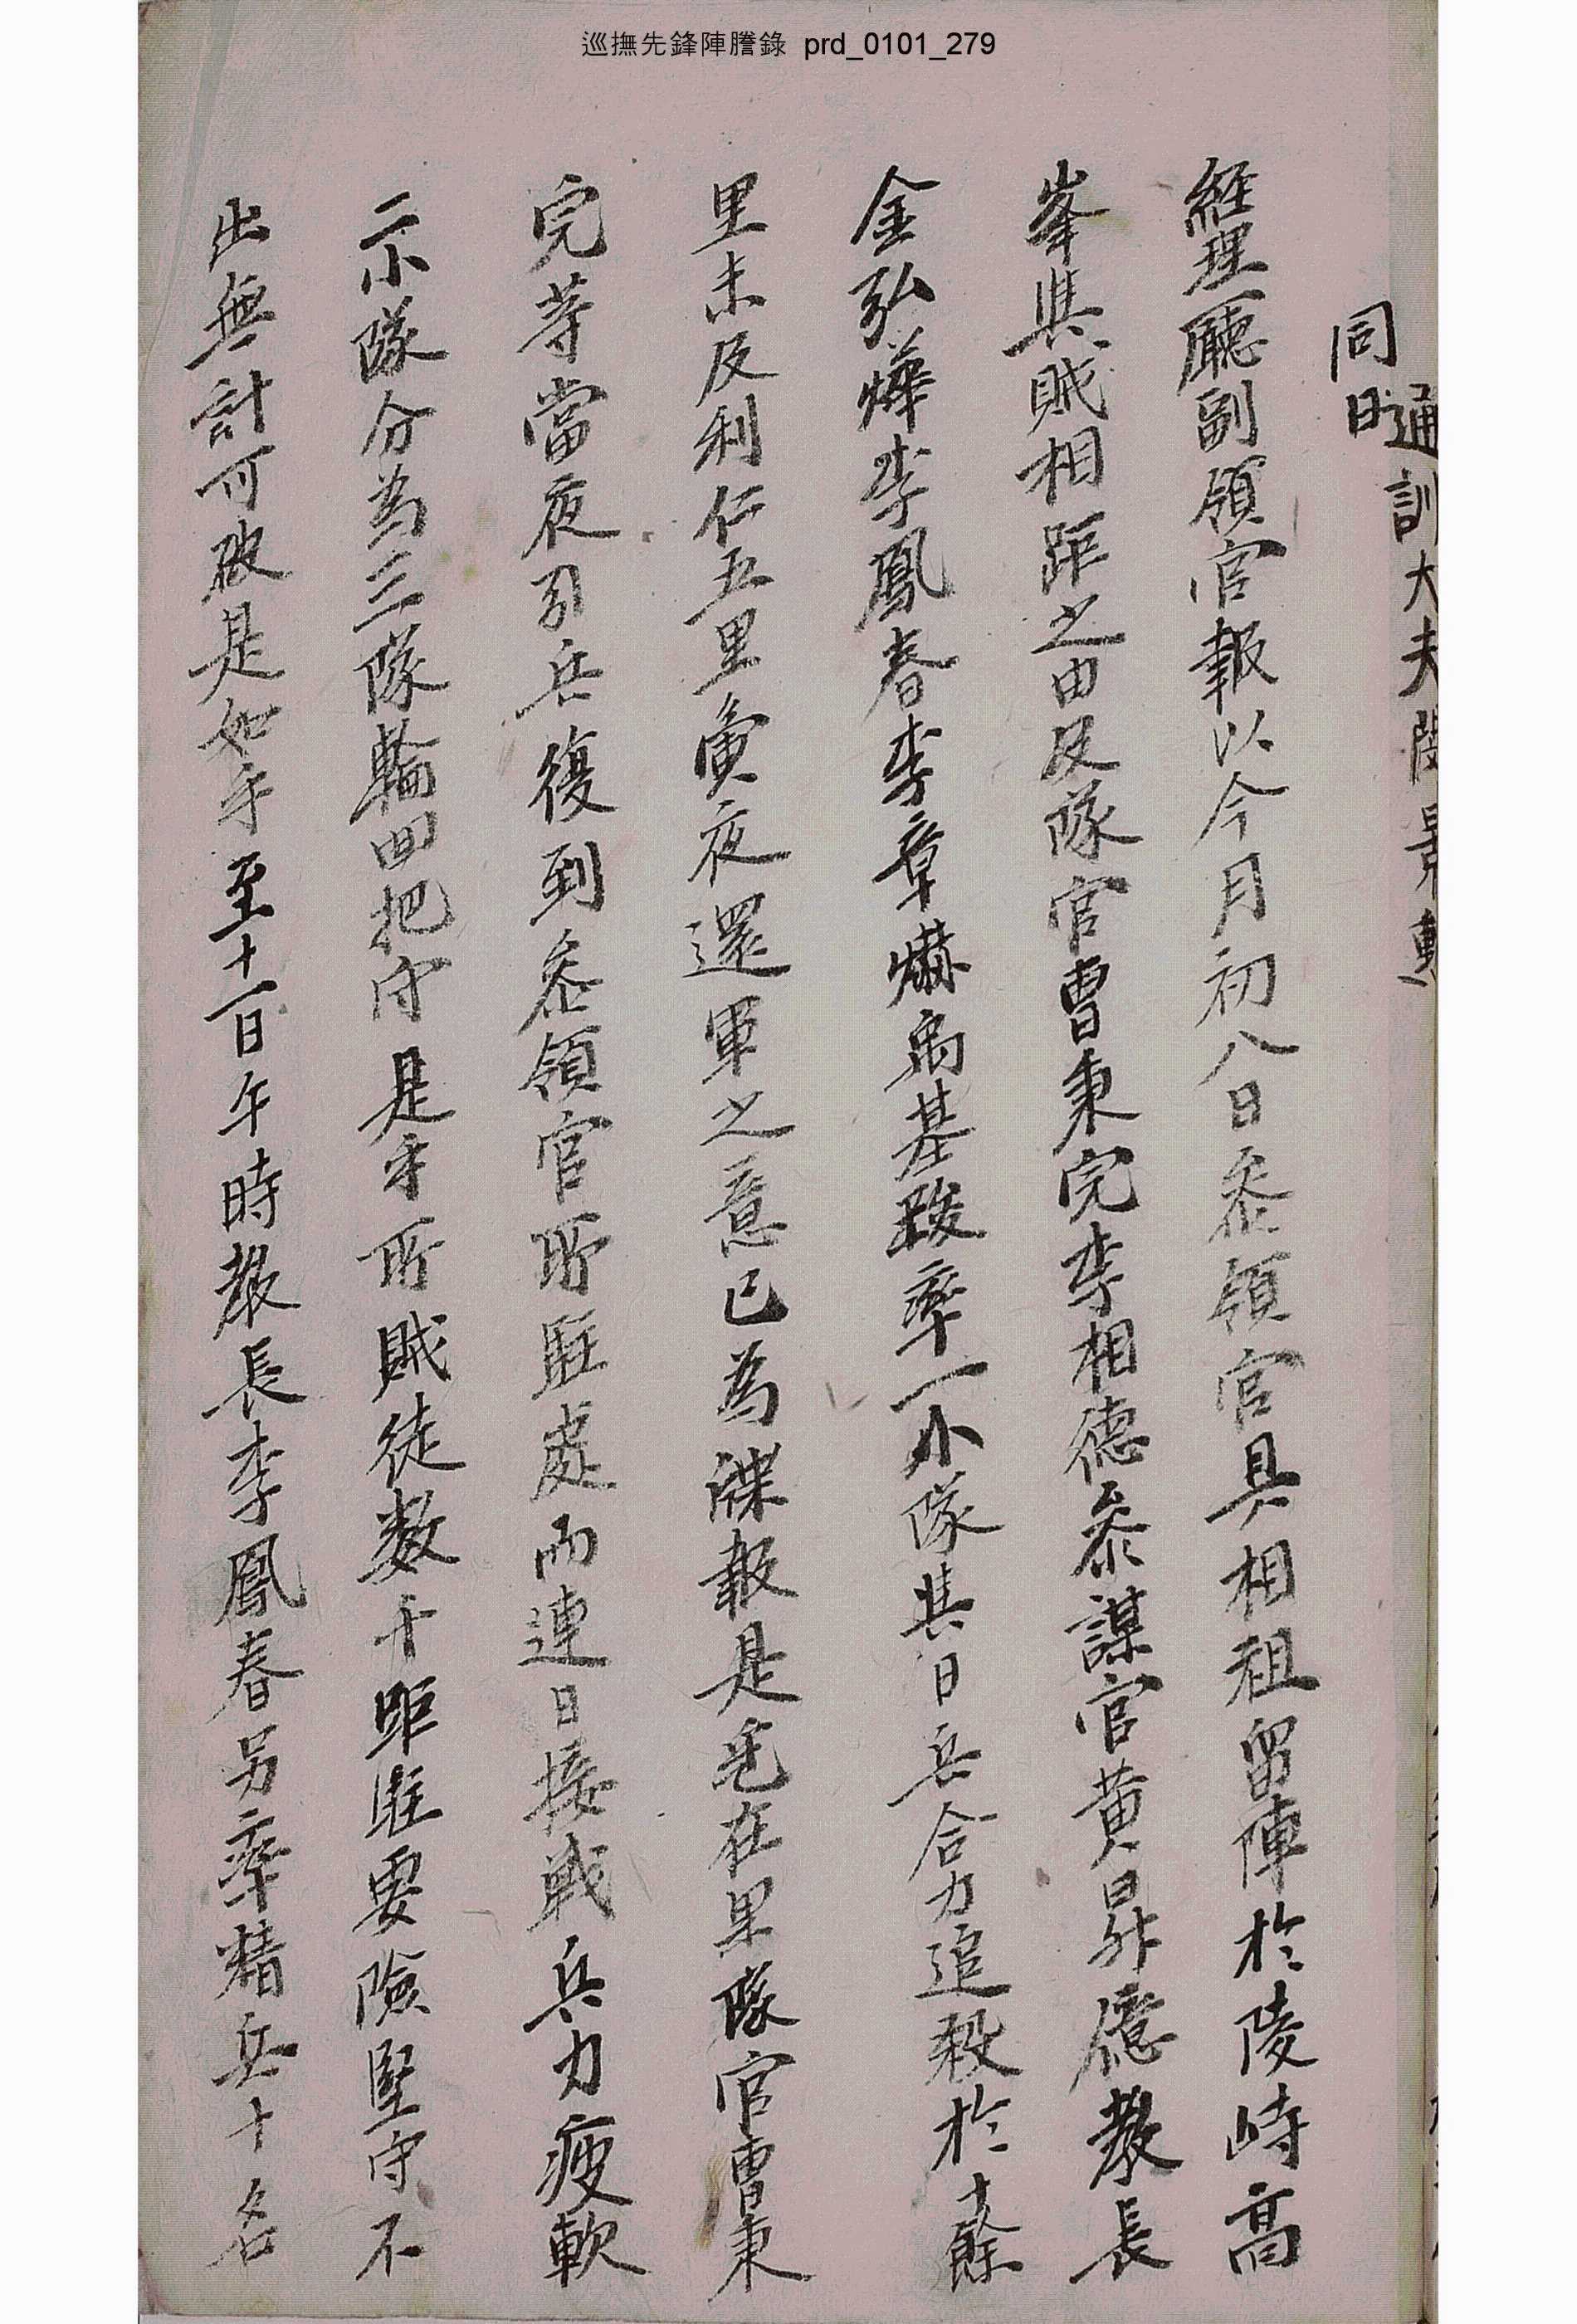 巡撫先鋒陣謄錄 prd_0101_279
通訓大夫陵
同日
經理廳副領官報以今月初八日叅領官具相祖留陣於陵峙高
峯與賊相距之由及隊官曺秉完李相德叅謀官黃昇億敎長
金弘燁李鳳春李章爀禹基駿率一小隊其日兵合力追殺於十餘
里未及利仁五里黃夜還軍之意已爲諜報是乎在果隊官曺秉
完等當夜引兵復到叅領官所駐處而連日接戰兵力疲軟
二小隊分爲三隊輪回把守是乎所賊徒數十距駐要險堅守不
出無計可破是如乎至十一日午時敎長李鳳春另率精兵十名